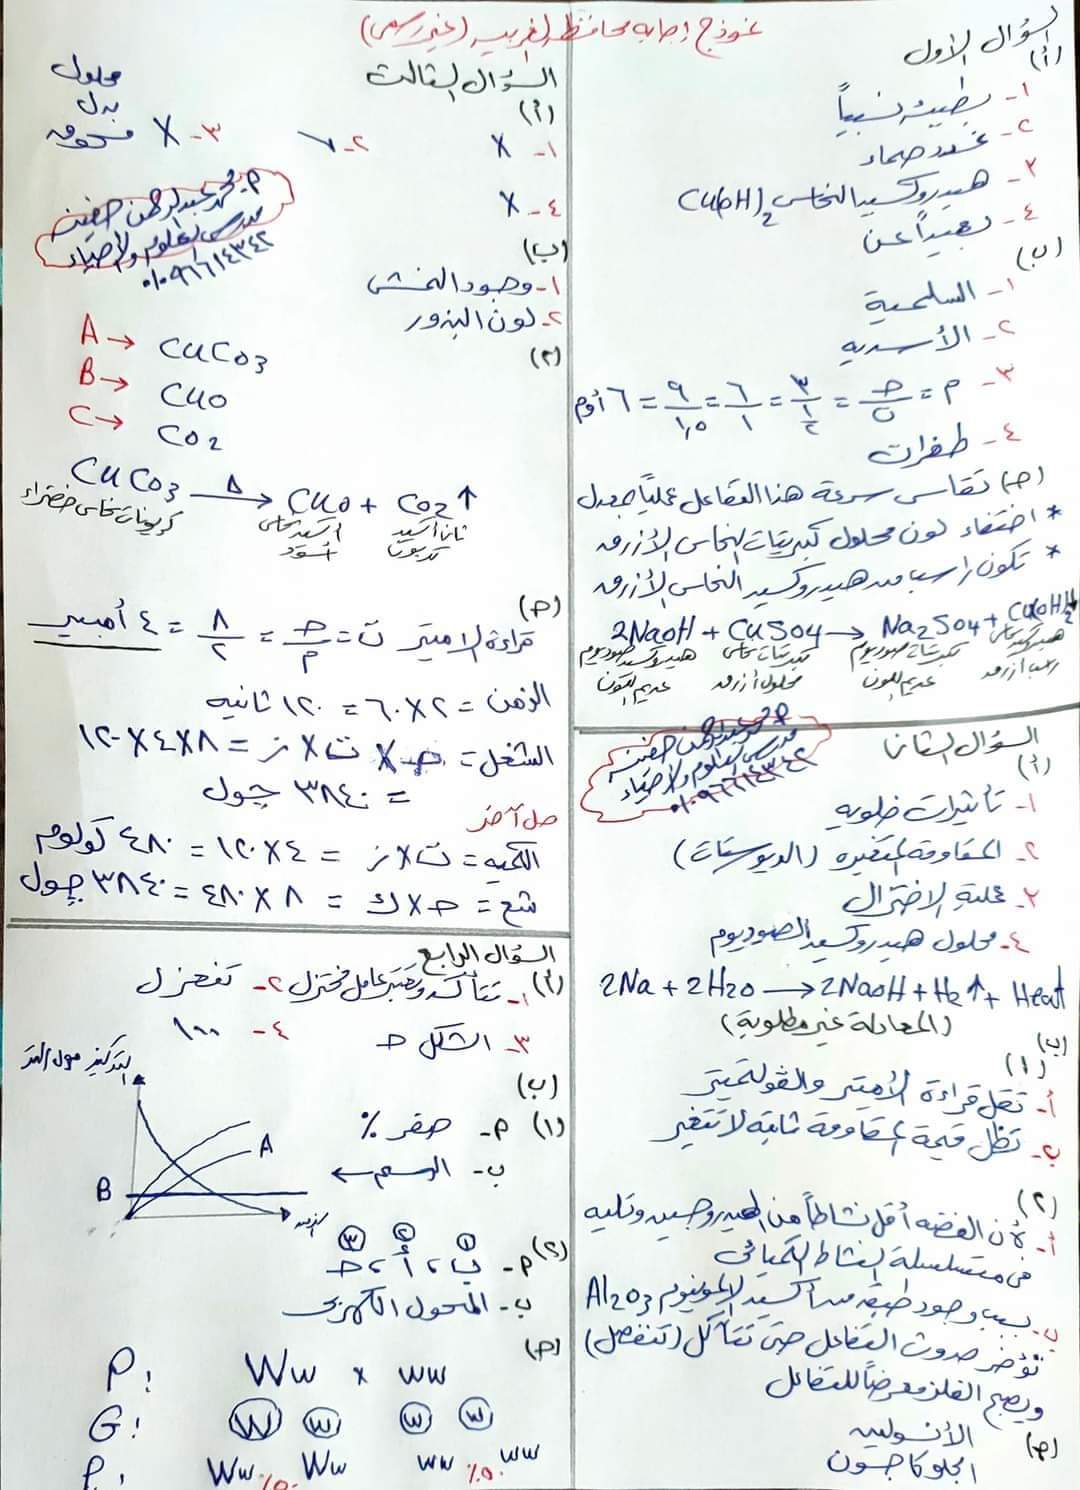 نموذج إجابة محافظة الغربية (غير رسمى)
السؤال الأول
(أ)
١- بطيئ نسبياً
٢- غدد صماء
٣- هيدروكسيد النحاس Cu(OH)₂
٤- بعيداً عن
(ب)
١- السلمية
٢- الأسدية
٣- م = جـ/ت = ٣/½ = ٦/١ = ٩/١,٥ = ٦ أوم
٤- طفرات
(جـ) تقاس سرعة هذا التفاعل عملياً بمعدل
* اختفاء لون محلول كبريتات النحاس الأزرق
* تكون راسب من هيدروكسيد النحاس الأزرق
2NaOH + CuSO4 → Na2SO4 + Cu(OH)2
هيدروكسيد صوديوم كبريتات نحاس كبريتات صوديوم هيدروكسيد نحاس
عديم اللون محلول أزرق عديم اللون راسب أزرق
السؤال الثانى
(أ)
١- تأثيرات خلوية
٢- المقاومة المتغيرة (الريوستات)
٣- عملية الاختزال
٤- محلول هيدروكسيد الصوديوم
2Na + 2H2O → 2NaOH + H2↑ + Heat
(المعادلة غير مطلوبة)
(ب)
(١)
أ- تقل قراءة الأميتر والڤولتميتر
ب- تظل قيمة المقاومة ثابتة لا تتغير
(٢)
أ- لأن الفضة أقل نشاطاً من الهيدروجين وتليه
فى متسلسلة النشاط الكيميائى
ب- بسبب وجود طبقة من أكسيد الألومنيوم Al2O3
تؤخر حدوث التفاعل حتى تتآكل (تنفصل)
ويصبح الفلز معرضاً للتفاعل
(جـ) الأنسولين
الجلوكاجون
السؤال الثالث
(أ)
١- X ٢- ✓ ٣- X محلول
بدل
مسحوق
٤- X
م. محمد عبدالرحمن
مدرس العلوم والأحياء
(ب)
١- وجود الخنثى
٢- لون البذور
(٢)
A → CuCO3
B → CuO
C → CO2
CuCO3 —Δ→ CuO + CO2↑
كربونات نحاس خضراء أكسيد نحاس ثانى أكسيد
أسود كربون
(جـ)
قراءة الاميتر ت = جـ/م = ٨/٢ = ٤ أمبير
الزمن = ٢ × ٦٠ = ١٢٠ ثانيه
الشغل = جـ × ت × ز = ٨ × ٤ × ١٢٠
= ٣٨٤٠ جول
حل آخر
الكمية = ت × ز = ٤ × ١٢٠ = ٤٨٠ كولوم
شغ = جـ × ك = ٨ × ٤٨٠ = ٣٨٤٠ جول
السؤال الرابع
(أ) ١- تتأكسد وتعتبر عامل مختزل ٢- تنعزل
٣- الشكل جـ ٤- ١٠٠
(ب)
(١) م- صفر %
ب- الرسم ←
A
B
(٢) م- ب ، أ ، جـ
① ② ③
ب- المحول الكهربى
(جـ)
P: Ww x ww
G: W w w w
Ww Ww ww ww
٥٠٪ ٥٠٪